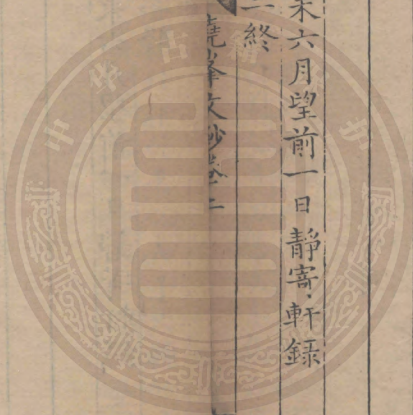 未六月望前一日靜寄軒録
二終
堯峯文鈔卷二